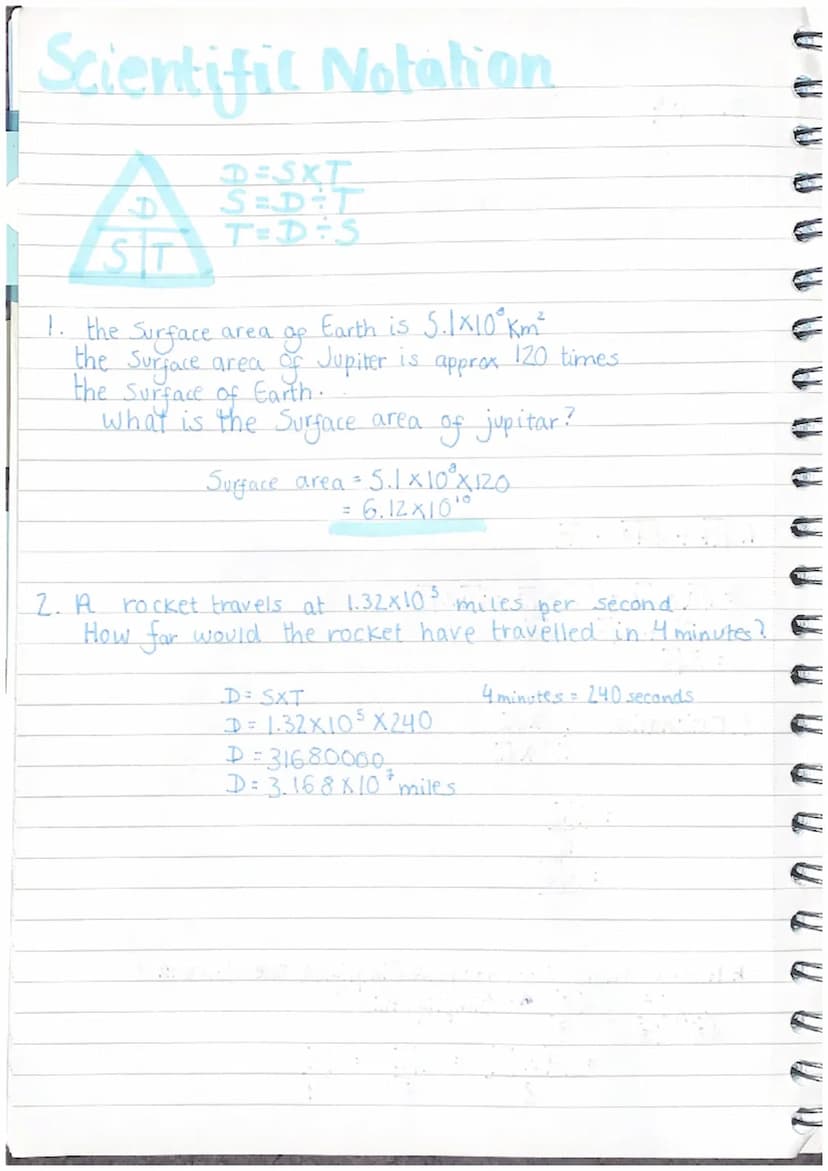 Scientific Notation
D = S X T
D
S = D ÷ T
S T
T = D ÷ S
1. the Surface area of Earth is 5.1X10⁸ Km²
the Surface area of Jupiter is approx 120 times
the surface of Earth.
What is the Surface area of jupitar?
Surface area = 5.1 X 10⁸ X 120
= 6.12 X 10¹⁰
2. A rocket travels at 1.32X10⁵ miles per second.
How far would the rocket have travelled in 4 minutes?
D = SXT 4 minutes = 240 seconds
D = 1.32X10⁵ X 240
D = 31680000
D = 3.168 X 10⁷ miles